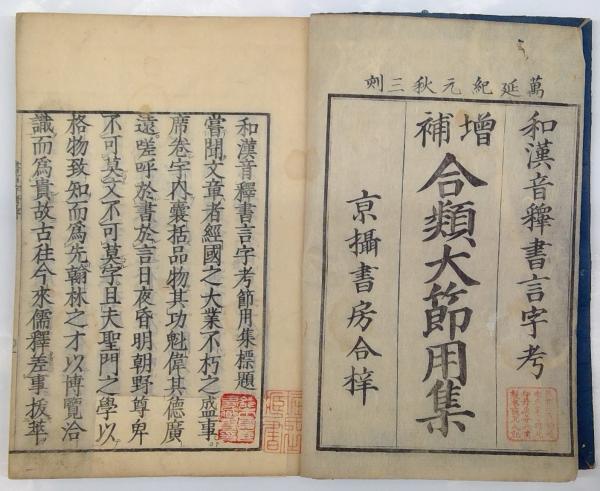 萬延紀元秋三刻
和漢音釋書言字考
增補
合類大節用集
京攝書房合梓
和漢音釋書言字考節用集標題
嘗聞文章者經國之大業不朽之盛事
席卷宇內囊括品物其功魁偉其德廣
遠嗟呼於書於言日夜昏明朝野尊卑
不可莫文不可莫字且夫聖門之學以
格物致知而為先翰林之才以博覽洽
識而為貴故古往今來儒釋差事拔萃